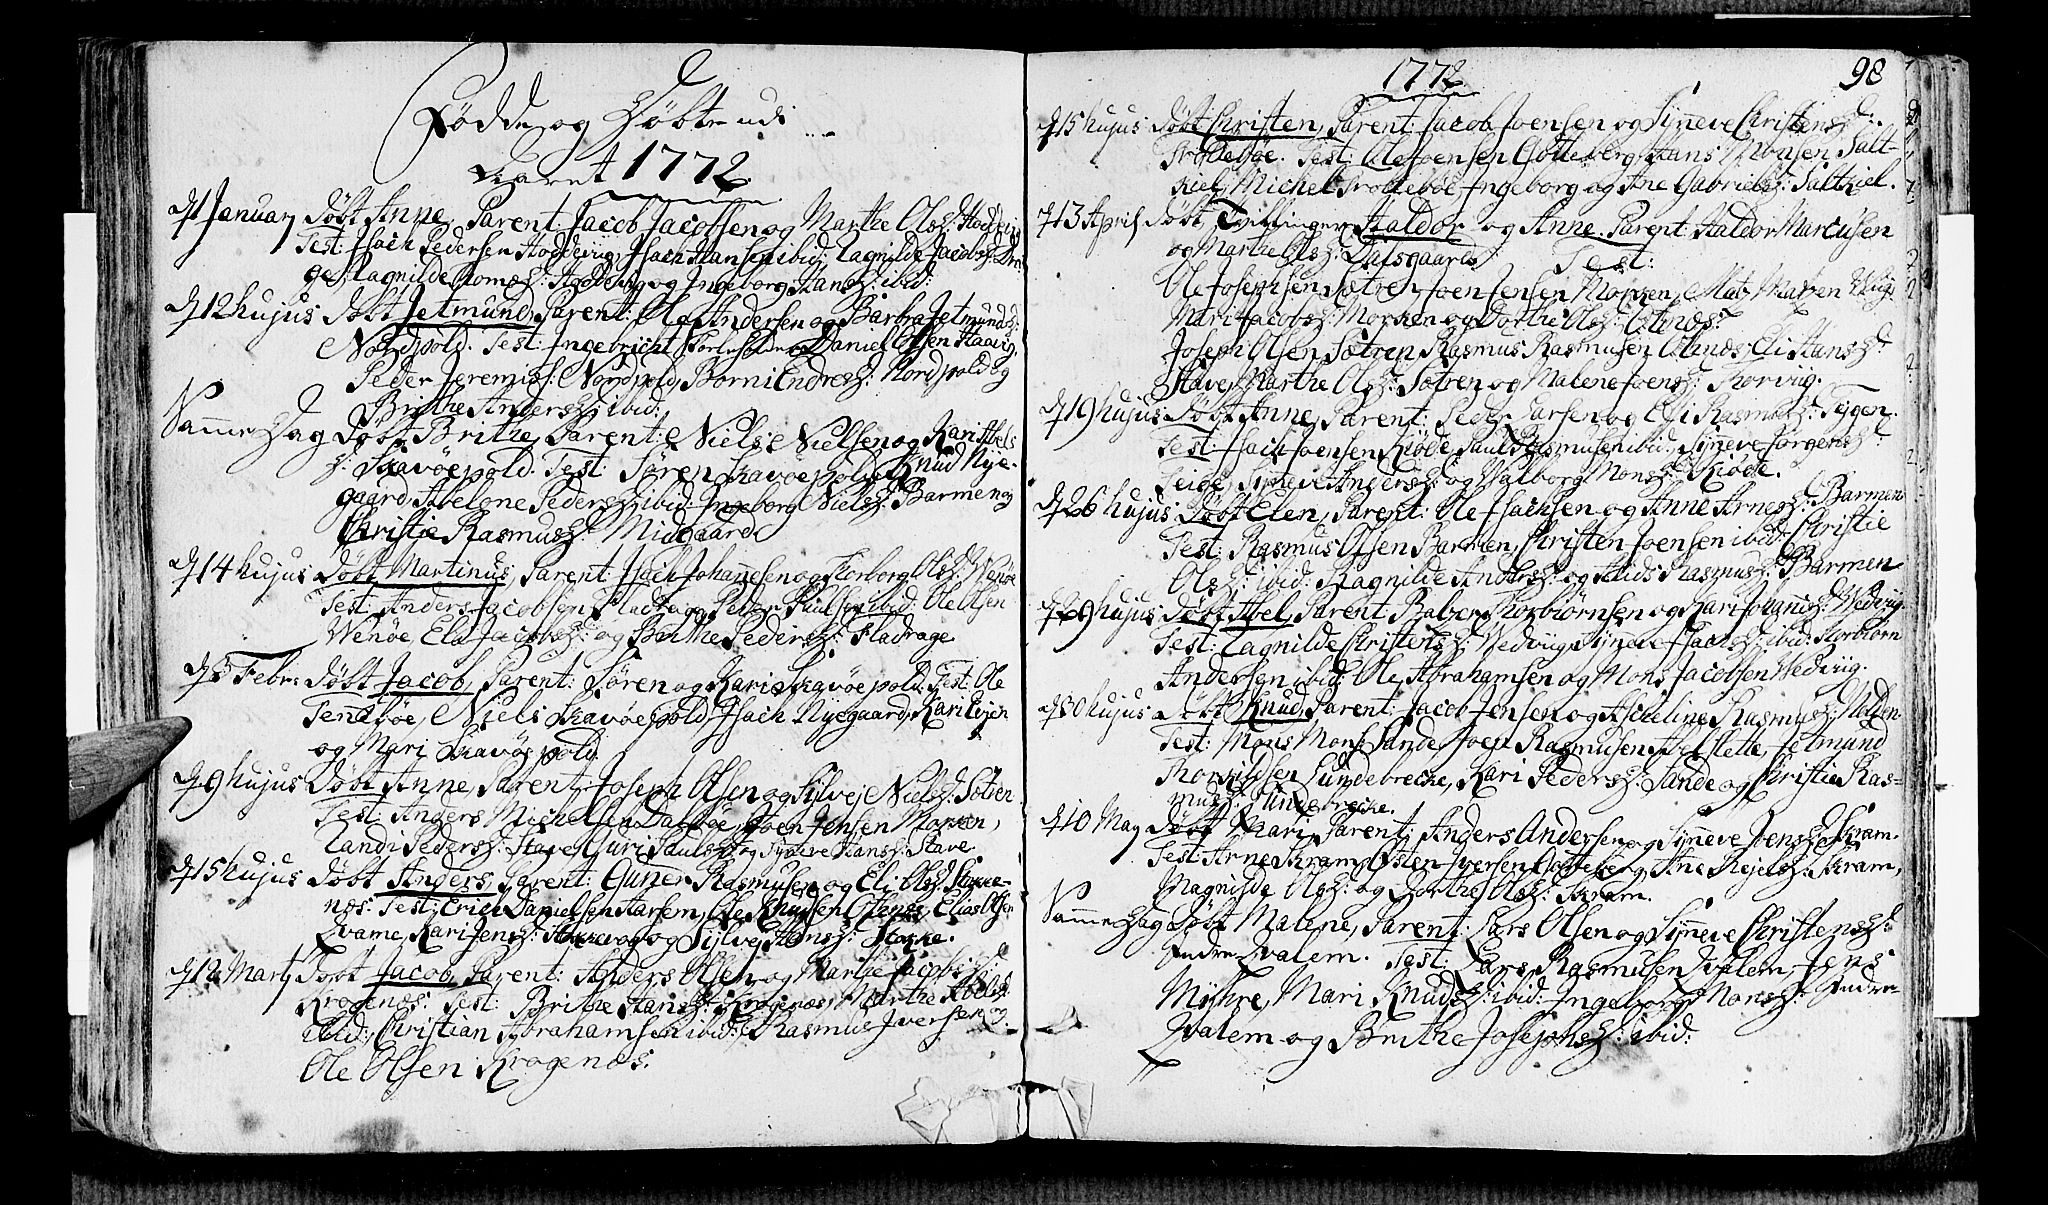 Fødde og Døbte udi
Aaret 1772
d 1 Januar Døbt Anne, Parent: Jacob Jacobsen og Marthe Olsd: Hoddevig
Test: Isach Pedersen Hoddevig, Isach Hansen ibid: Ragnilde Jacobsd:
Ragnilde Thomæd: Hoddevig og Ingeborg Hansd: ibid:
d 12 hujus Døbt Jetmund, Parent: Ole Andersen og Barbra Jetmundsd:
Nordpold. Test: Ingebricht Daniel Olsen Haavig,
Peder Jeremiæs: Nordpold, Borni Endresd: Nordpold og
Brithe Andersd: ibid:
Samme Dag Døbt Brithe, Parent: Niels Nielsen og Kari Abels
d: Skavøepold. Test: Søren Skavøepold, Knud Nye-
gaard, Abelone Pedersd: ibid: Ingeborg Nielsd: Barmen og
Christie Rasmusd: Midgaard
d 14 hujus Døbt Martinus, Parent: Isach Johannesen og Torborg Olsd: Wenøe
Test: Anders Jacobsen Fladrage, Peder Paulsen ibid: Ole Olsen
Wenøe, Els Jacobsd: og Brithe Pedersd: Fladrage
d 3 Febr: Døbt Jacob, Parent: Søren og Kari Skavøepold. Test: Ole
Tenebøe, Niels Skavøepold, Isach Nyegaard, Kari Ervjen
og Mari Skavøepold.
d 9 hujus Døbt Anne, Parent: Joseph Olsen og Sylvej Nielsd: Sætren
Test: Anders Michelsen Dalsbøe, Joen Jensen Morken,
Randi Pedersd: Stave, Guri Paulsd: og Synneve Hansd: Stave
d 15 hujus Døbt Anders, Parent: Guner Rasmusen og Eli Olsd: Stokke-
næs. Test: Erich Danielsen Aarsem, Ole Knudsen Otenes, Elias Olsen
Qvame, Kari Jensd: og Sylvej Hansd: Stokke.
d 12 Marty Døbt Jacob, Parent: Anders Olsen og Marthe Jacobsd:
Krogenæs. Test: Brithe Hansd: Krogenæs, Marthe Abelsd:
ibid: Christian Abrahamsen ibid: Rasmus Iversen og
Ole Olsen Krogenæs.
1772
98
d 15 hujus Døbt Christen, Parent: Jacob Joensen og Synneve Christensd:
Frødebøe. Test: Ole Joensen Gotteberg, Hans Monsen Salt-
kiel, Michel Frødebøe, Ingeborg og Ane Gabrielsd: Saltkiel.
d 13 April Døbt Tvillinger Haldor og Anne, Parent: Haldor Marcusen
og Marthe Olsd: Dalsgaard Test:
Ole Josephsen Sætren, Joen Jensen Morken, Mats Morken,
Mari Jacobsd: Morken og Dorthe Olsd: Otnæs.
Joseph Olsen Sætren, Rasmus Rasmusen Otnæs, Eli Hansd:
Stave, Marthe Olsd: Sætren og Malene Joensd: Korvig.
d 19 hujus Døbt Anne, Parent: Peder Larsen og Eli Rasmusd: Teigen.
Test: Isach Joensen Kiøde, Paul Rasmusen ibid: Synneve Jørgensd:
Teige, Synneve Andersd: og Walborg Monsd: Kiøde.
d 26 hujus Døbt Elen, Parent: Ole Isachsen og Anne Arnesd: Barmen
Test: Rasmus Olsen Barmen, Christen Joensen ibid: Christie
Olsd: ibid: Ragnilde Andersd: og Alids Rasmusd: Barmen
d 29 hujus Døbt Abel, Parent: Balzer Thorbiørnsen og Kari Johannisd: Wedvig.
Test: Ragnilde Christensd: Wedvig, Synneve Isachsd: ibid: Thorbiørn
Andersen ibid: Ole Abrahamsen og Mons Jacobsen Wedvig.
d 30 hujus Døbt Knud, Parent: Jacob Jensen og Ascheline Rasmusd: Molden
Test: Mons Mons: Sande, Joen Rasmusen Abelflette, Jetmund
Thorkildsen Lundebrecke, Kari Pedersd: Sande og Christie Ras-
musd: Lundebrecke.
d 10 May Døbt Mari, Parent: Anders Andersen og Synneve Joensd: Skram.
Test: Arne Skram, Osten Iversen Gotteberg, Ane Rejelsd: Skram,
Magnilde Olsd: og Dorthe Olsd: Skram.
Samme Dag Døbt Malene, Parent: Lars Olsen og Synneve Christensd:
Indre Dvalem. Test: Lars Rasmusen Dvalem, Jens
Myhre, Mari Knudsd: ibid: Ingeborg Monsd: Indre-
Dvalem og Brithe Josephsd: ibid: